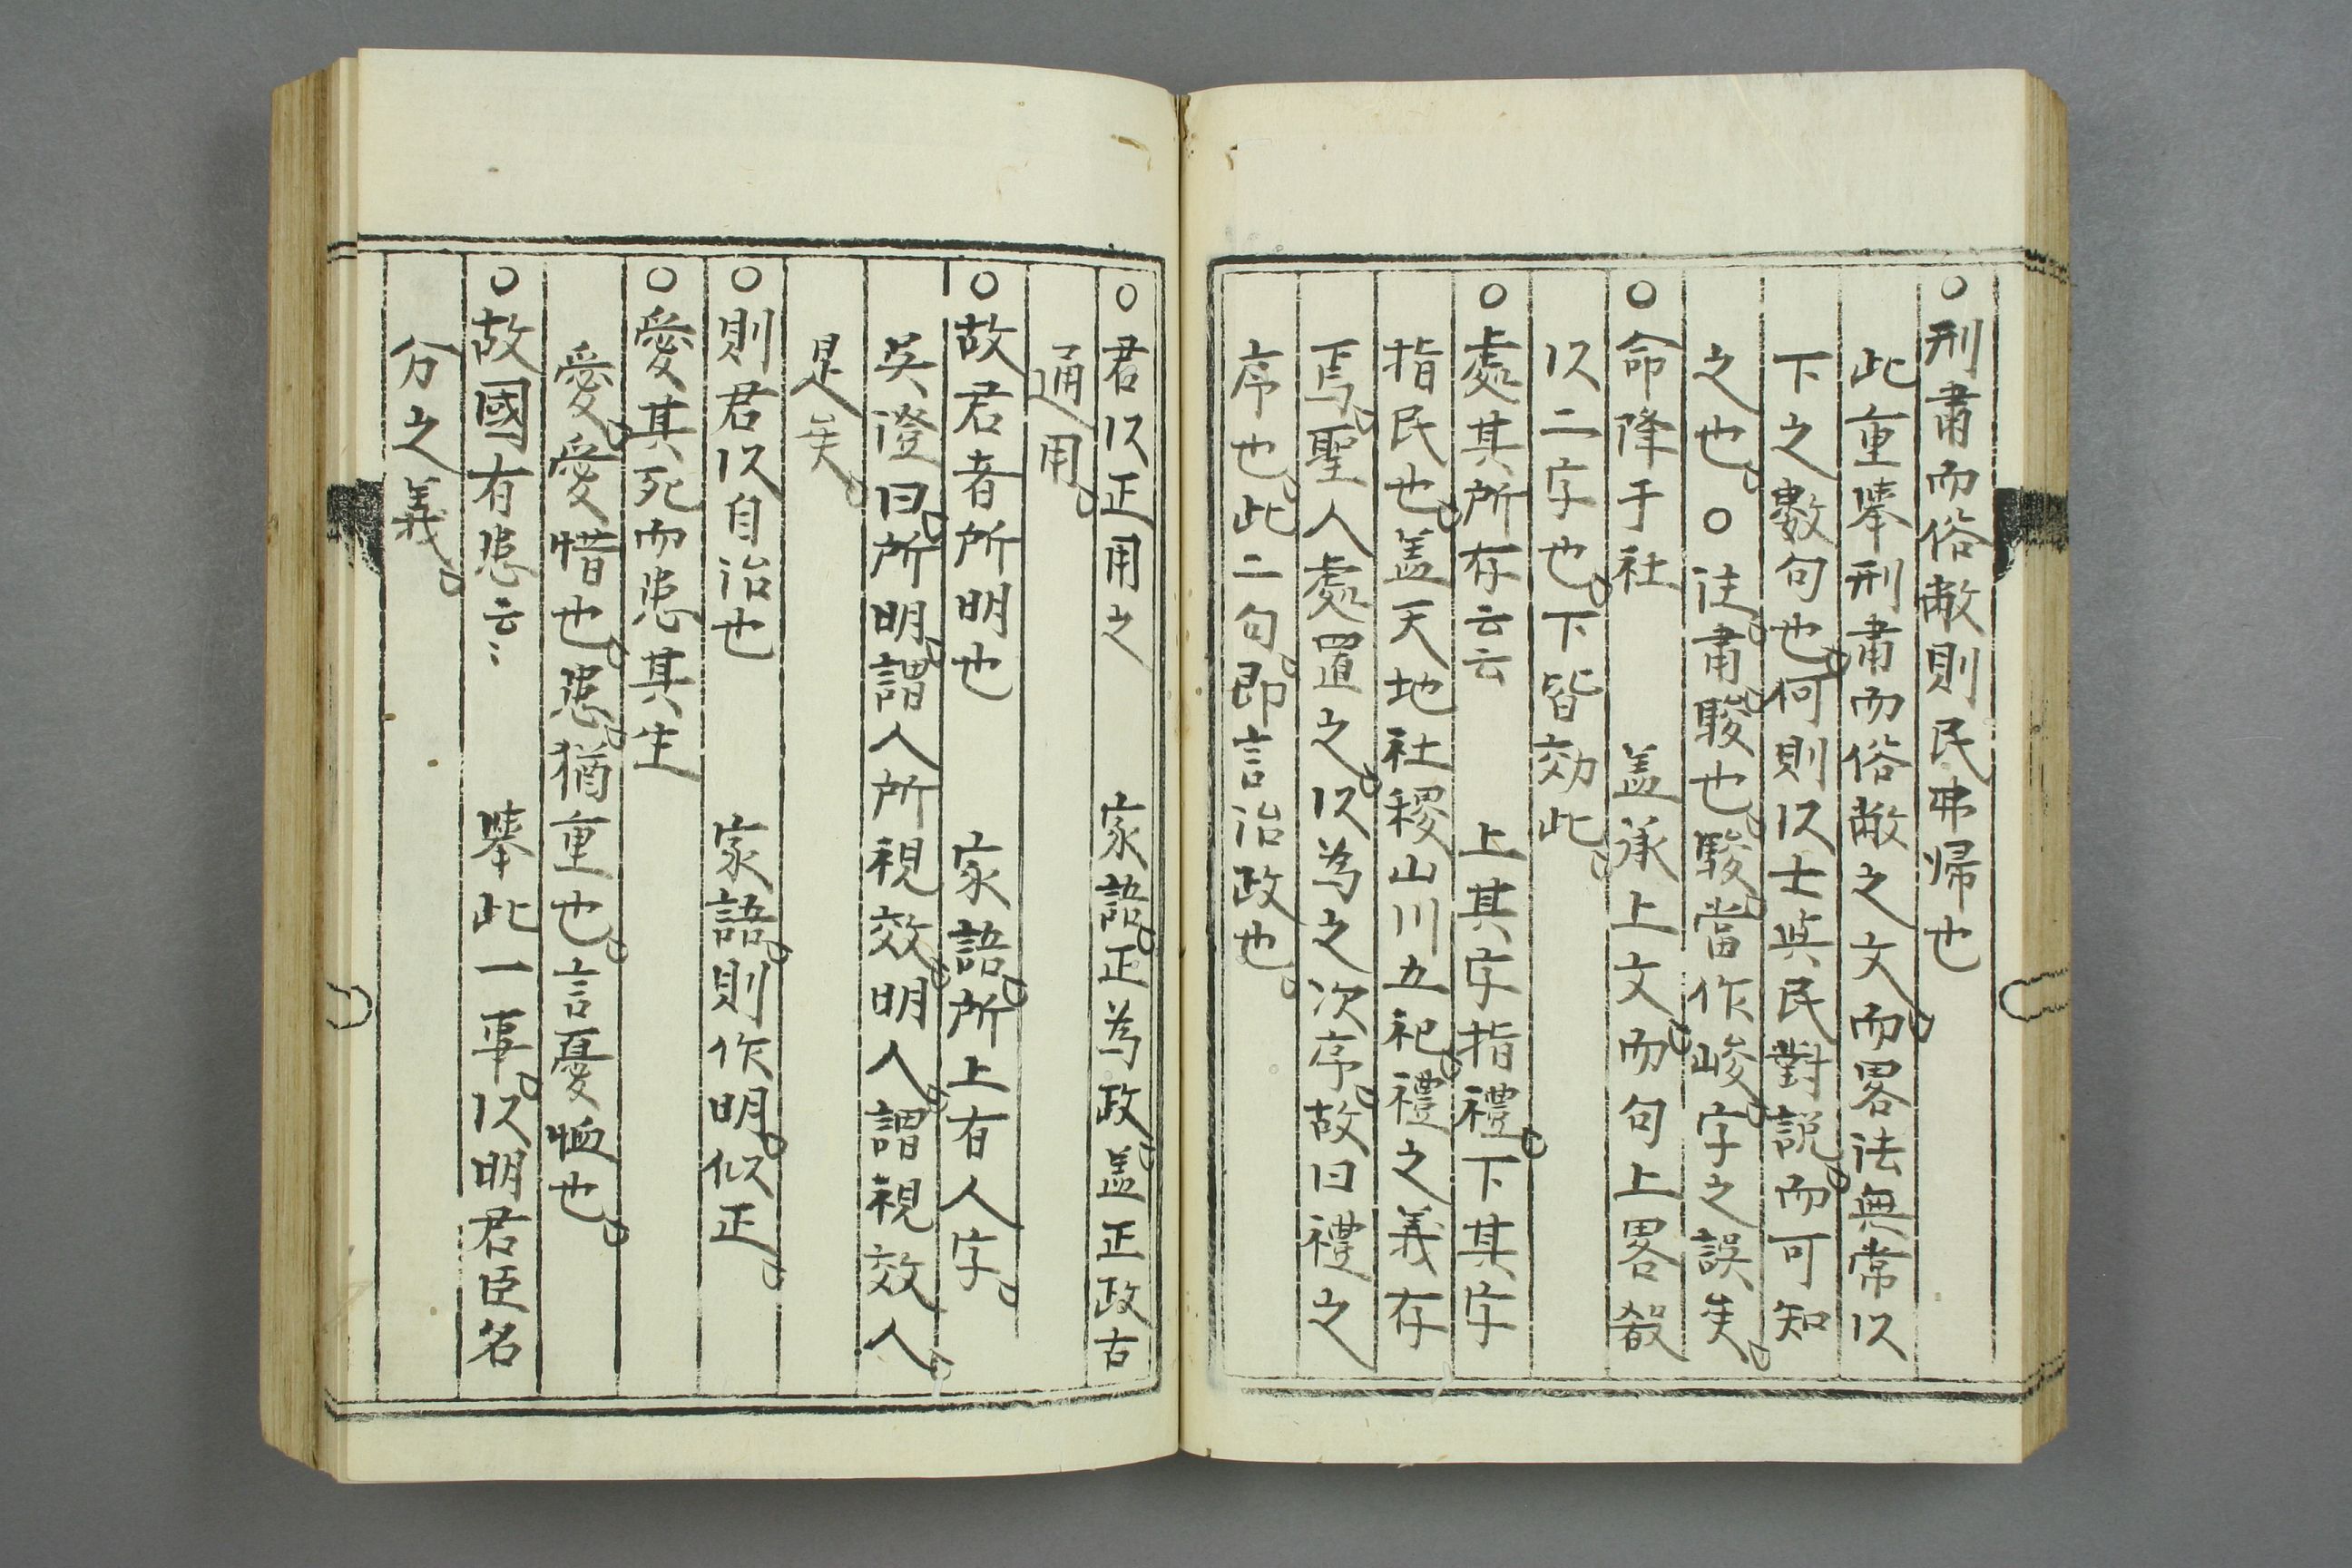 ○刑肅而俗敝則民弗帰也
此重擧刑肅而俗敝之文。而畧法無常以
下之數句也。何則以士與民對說。而可知
之也。○注。肅。駿也。駿。當作峻。字之誤矣。
○命降于社　盖承上文。而句上畧殽
以二字也。下皆効此。
○處其所存云云　上其字指禮。下其字
指民也。盖天地社稷山川五祀。禮之義存
焉。聖人處置之。以為之次序。故曰禮之
序也。此二句。即言治政也。
○君以正用之　家語。正為政。盖正政古
通用。
○故君者所明也　家語。所上有人字。
吳澄曰。所明。謂人所視效。明人。謂視效人。
是矣。
○則君以自治也　家語。則作明。似正。
○愛其死而患其生
愛。愛惜也。患。猶重也。言憂恤也。
○故國有患云〻　擧此一事。以明君臣名
分之義。